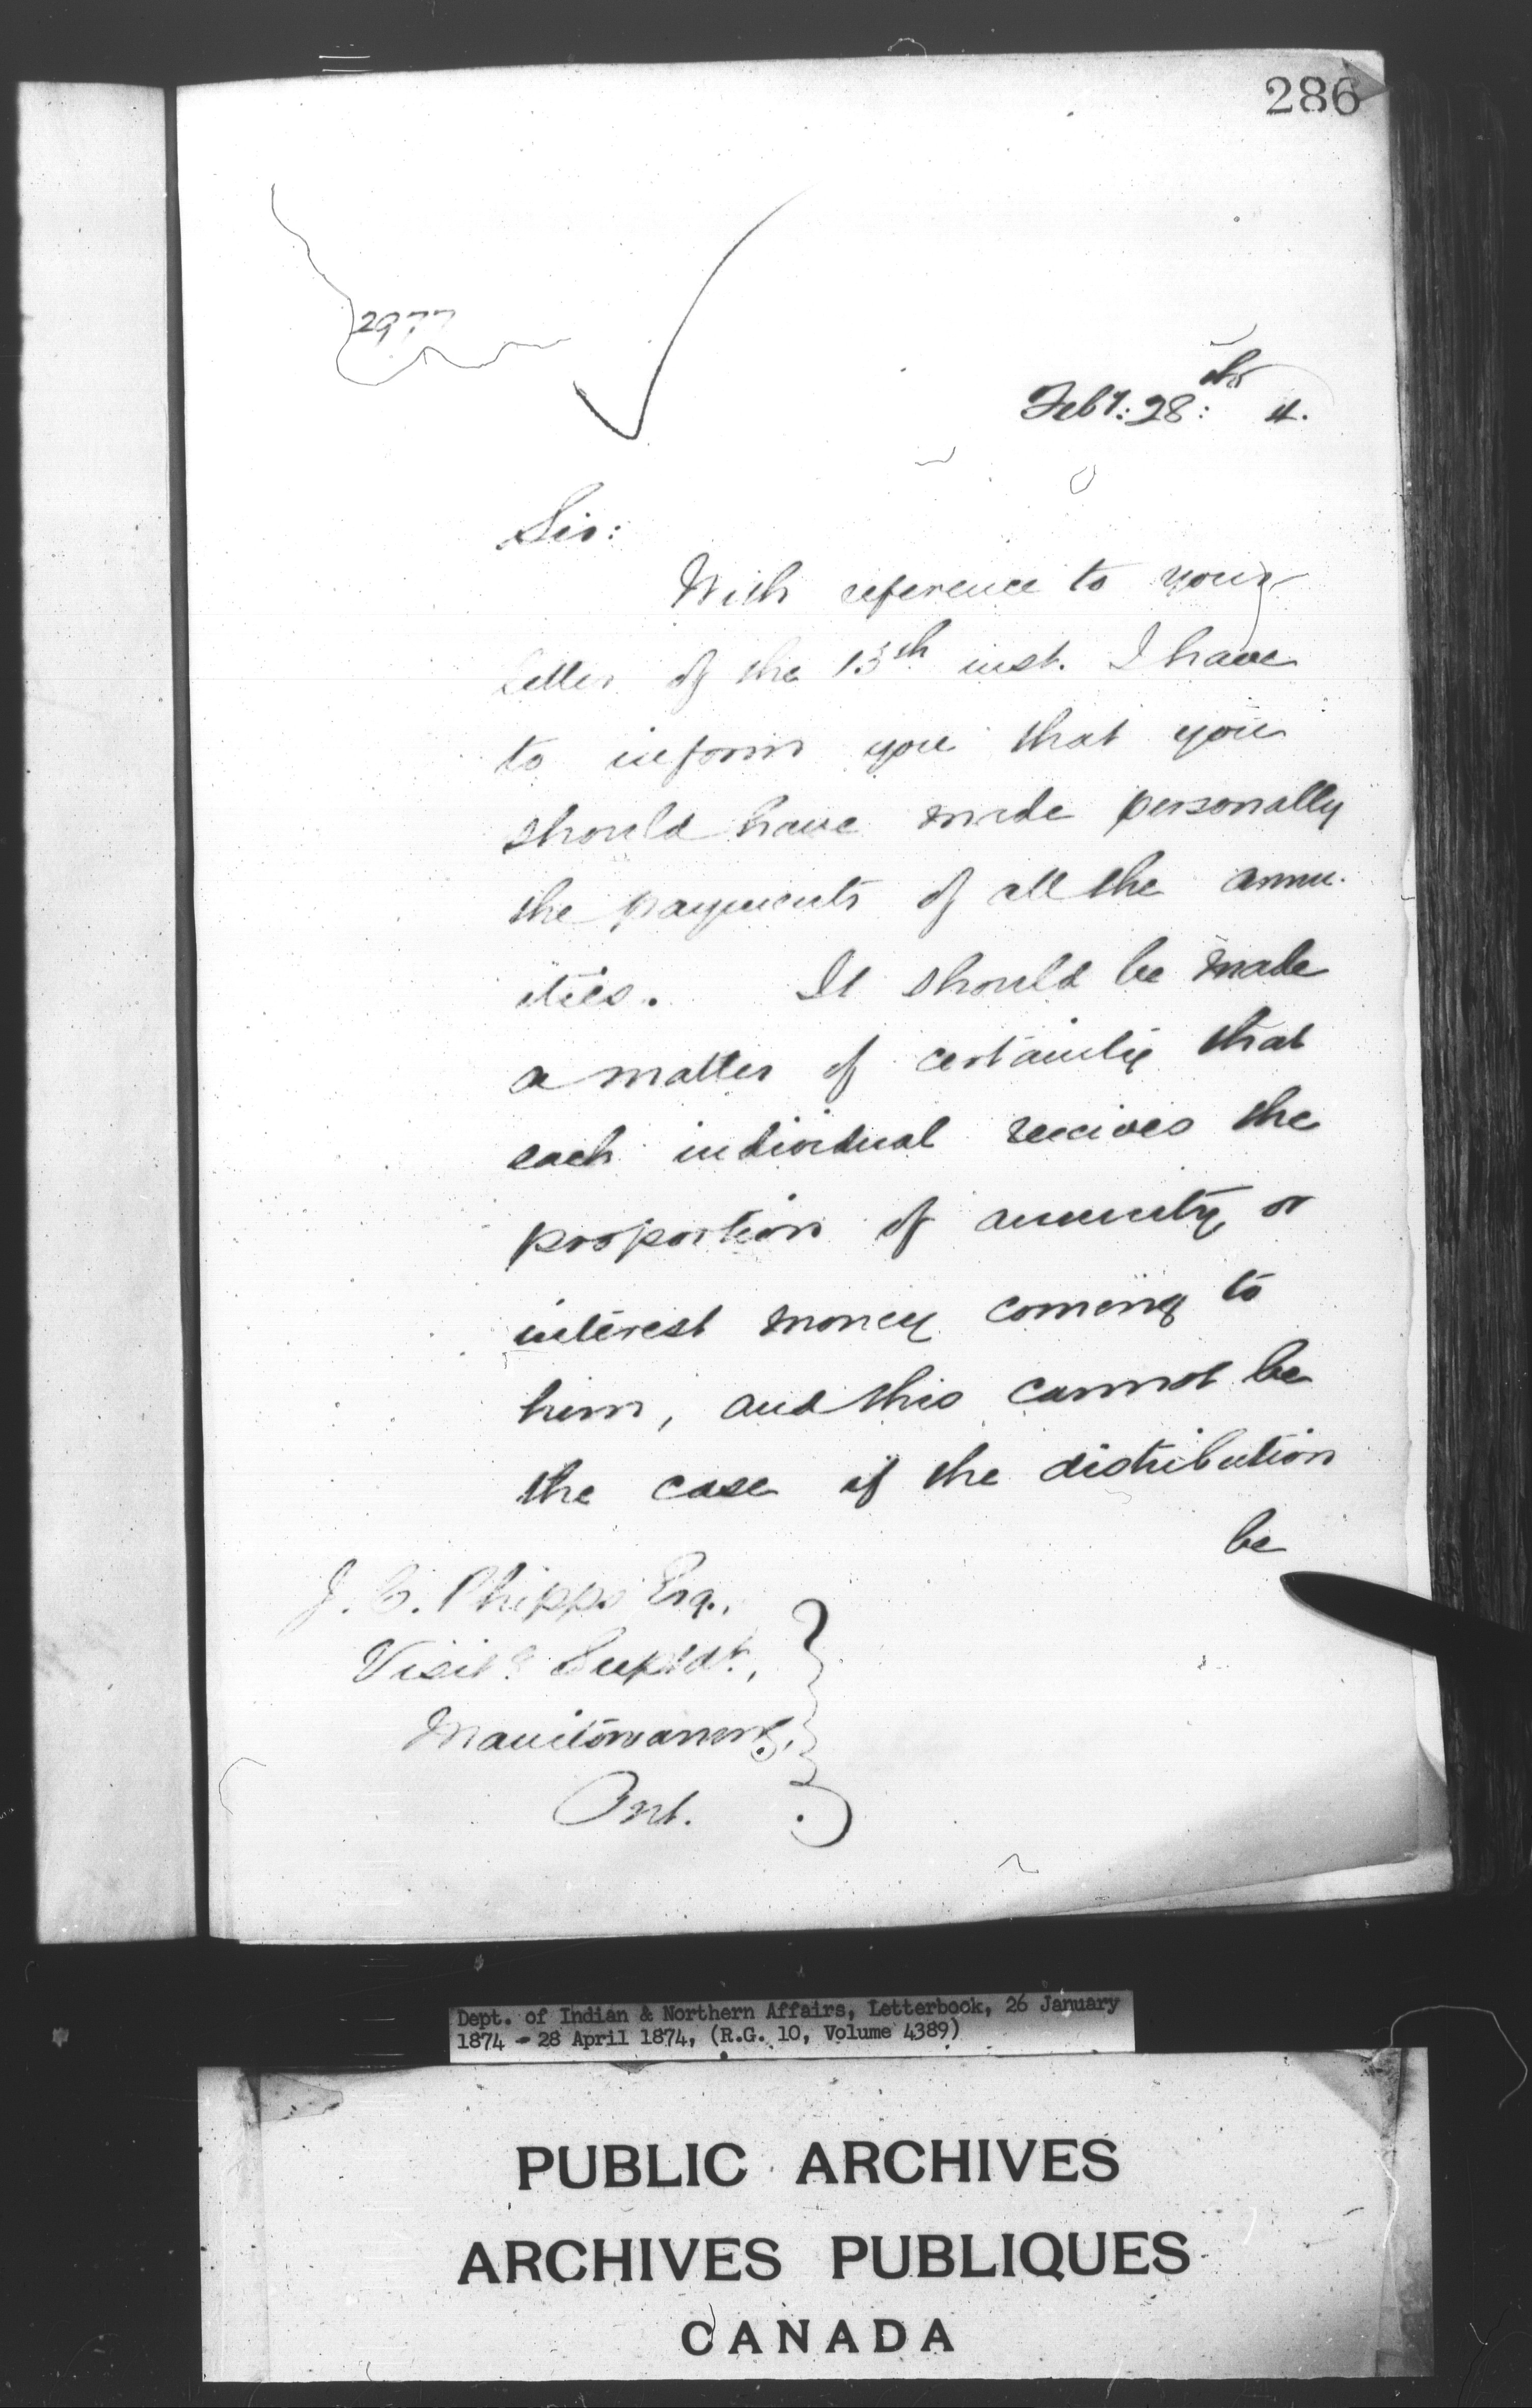 286
2977
Feby: 28:th 4.
Sir:
With reference to your
letter of the 13th inst. I have
to inform you that you
should have made personally
the payments of all the annu-
ities. It should be made
a matter of certainty that
each individual receives the
proportion of annuity or
interest money coming to
him, and this cannot be
the case if the distribution
be
J. C. Phipps Esq.,
Visitg Suptdt.,
Manitowaning,
Ont.
Dept. of Indian & Northern Affairs, Letterbook, 26 January
1874 - 28 April 1874, (R.G. 10, Volume 4389)
PUBLIC ARCHIVES
ARCHIVES PUBLIQUES
CANADA